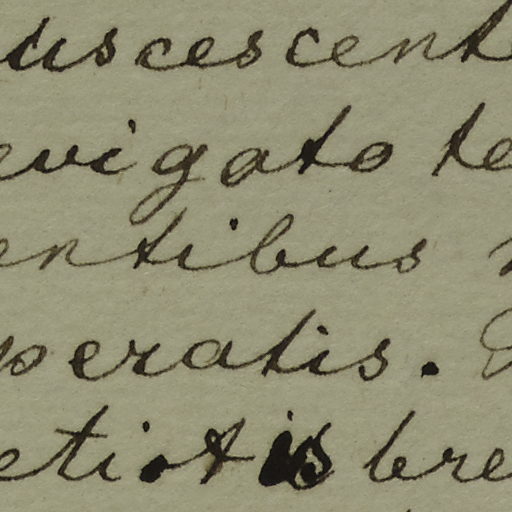 uscescent
evigato te
entibus
peratis.
etiotis bre